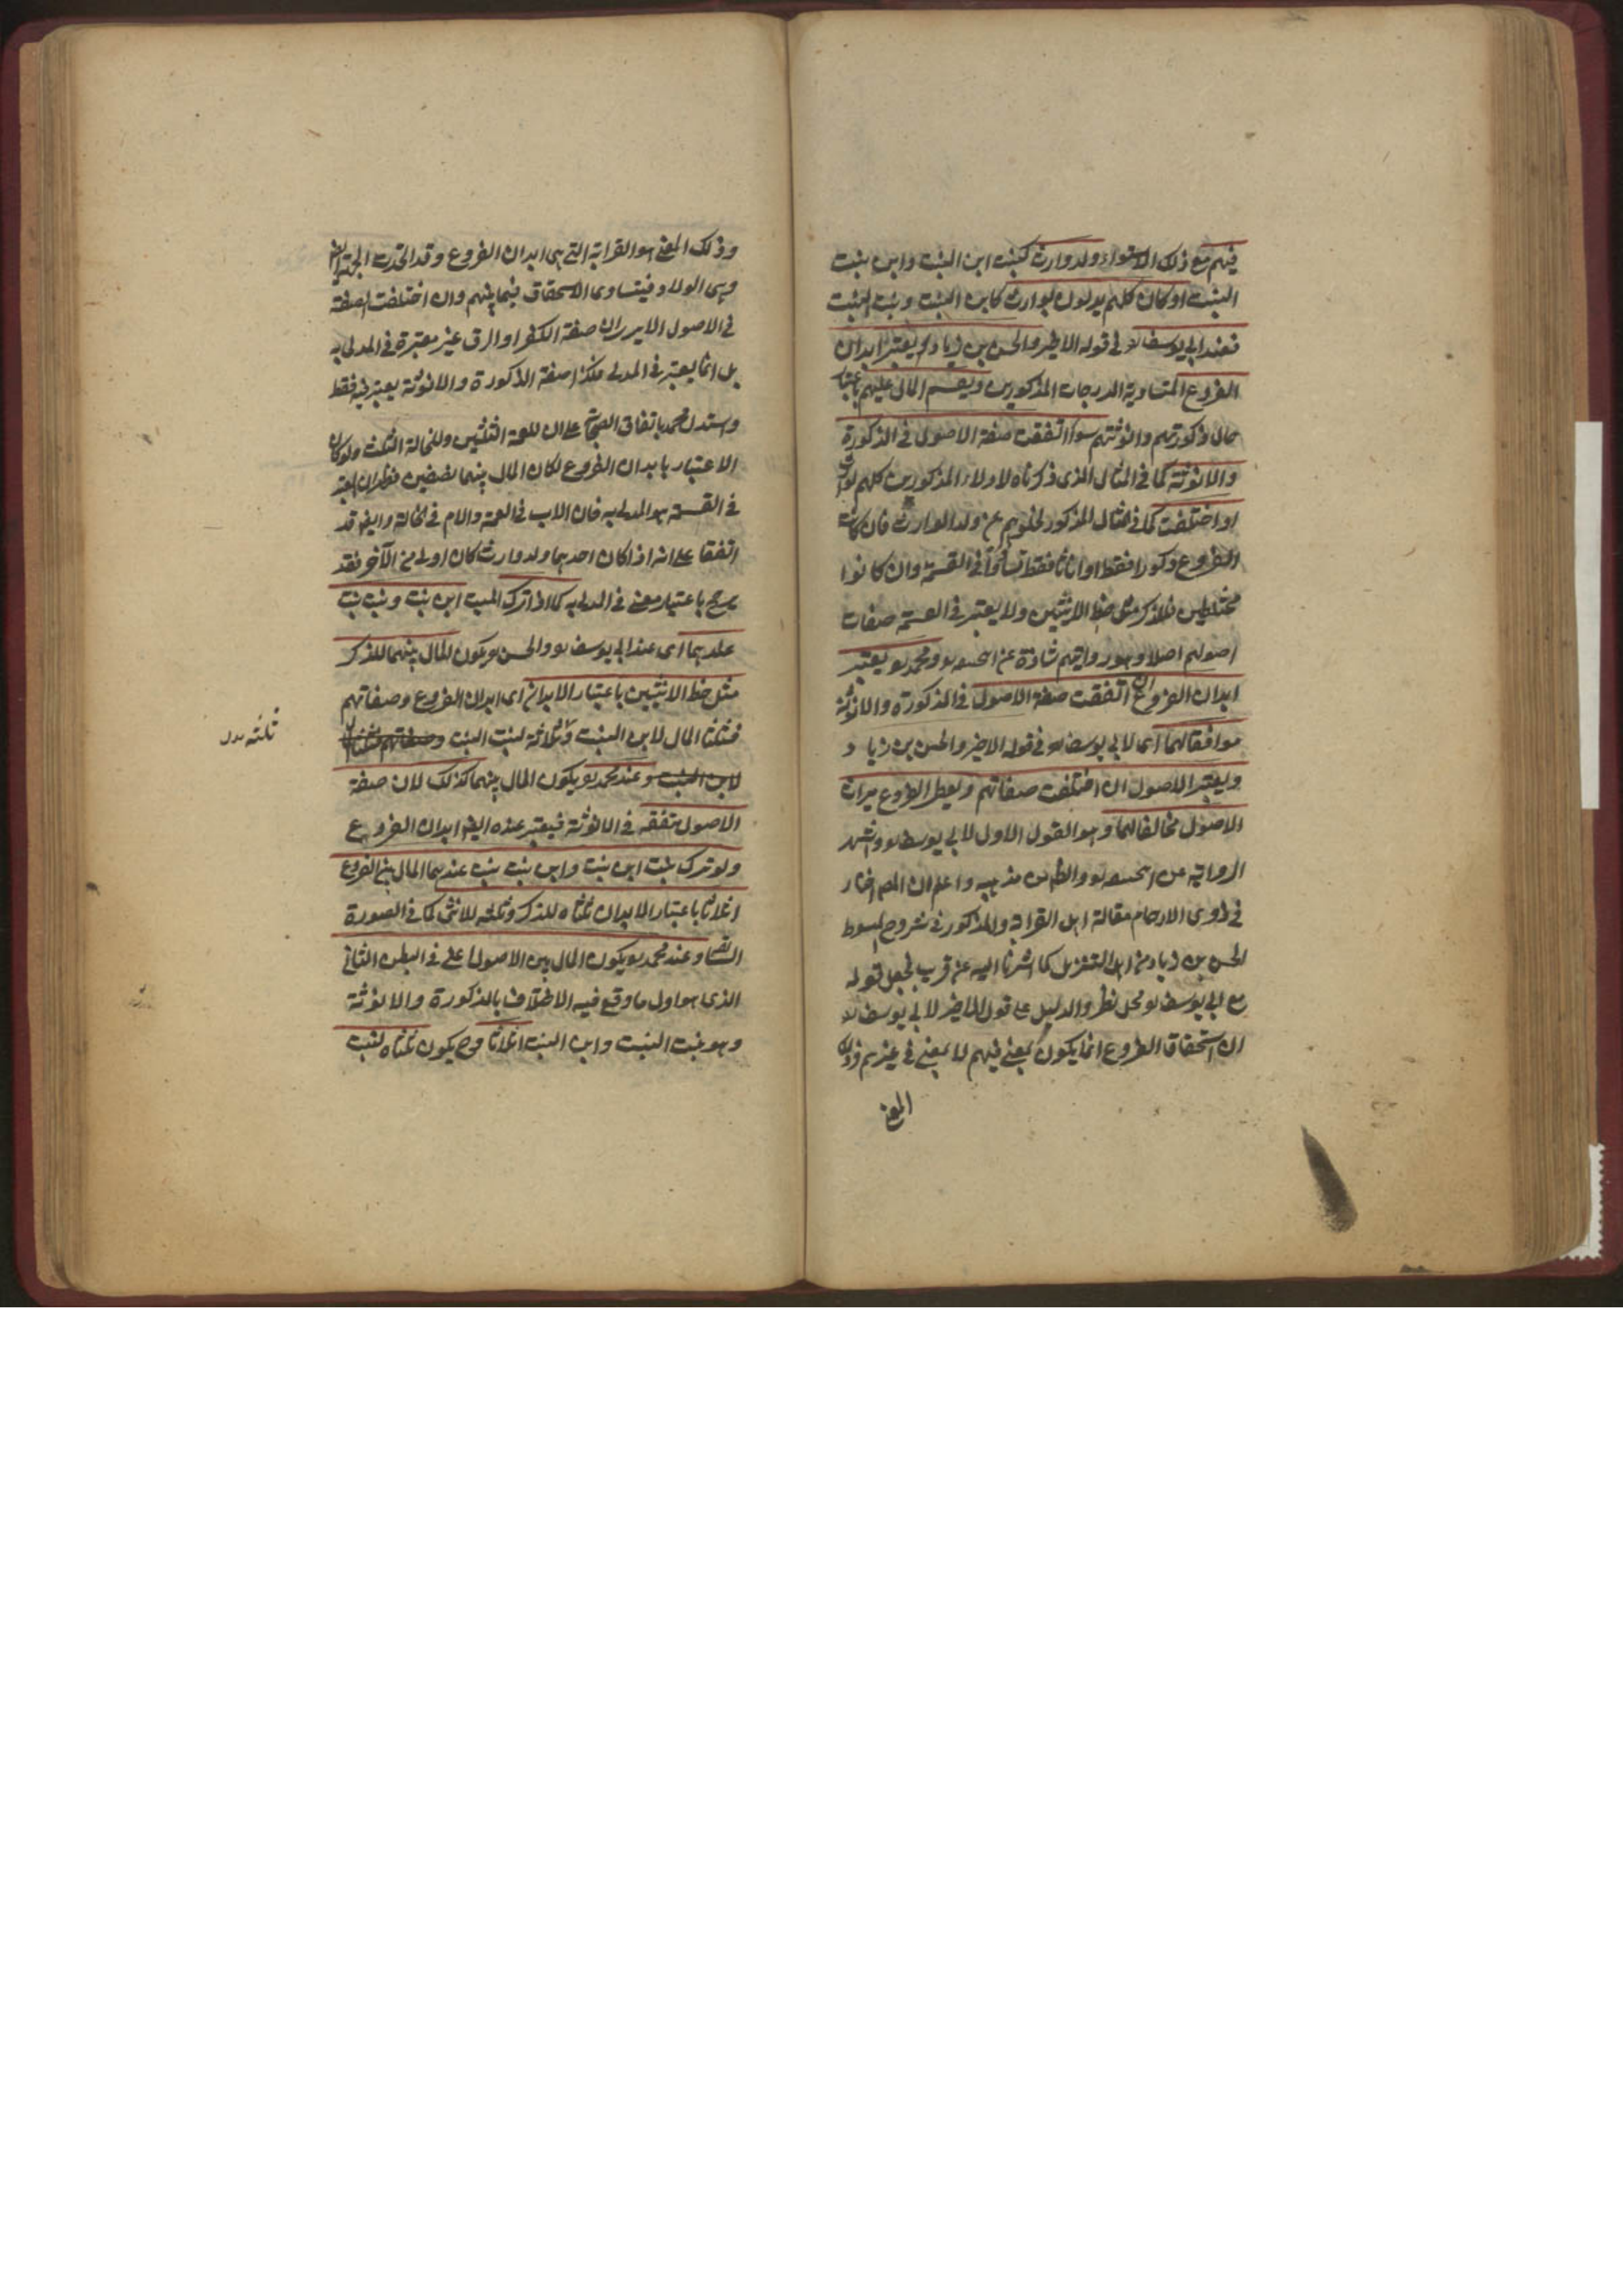 فيهم مع ذلك الاستواء ولد وارث كبنت ابن البنت وابن بنت
البنت او كان كلهم يدلون بوارث كابن البنت وبنت البنت
فعند ابي يوسف في قوله الاخير والحسن بن زياد يعتبر ابدان
الفروع المتساوية الدرجات المذكورين ويقسم المال عليهم باعتبار
حال ذكورتهم وانوثتهم سواء اتفقت صفة الاصول في الذكورة
والانوثة كما في المثال الذي ذكرناه لاولاد المذكورين كلهم
او اختلفت كما في المثال المذكور لخلوهم عن ولد الوارث فان كانت
الفروع ذكورا فقط او اناثا فقط تساووا في القسمة وان كانوا
مختلطين فللذكر مثل حظ الانثيين ولا يعتبر في القسمة صفات
اصولهم اصلا وهو رواية شاذة عن ومحمد يعتبر
ابدان الفروع ان اتفقت صفة الاصول في الذكورة والانوثة
موافقا لهما اي لابي يوسف في قوله الاخير والحسن بن زياد
ويعتبر الاصول ان اختلفت صفاتهم ويعطي الفروع ميراث
الاصول مخالفا لهما وهو القول الاول لابي يوسف واشهر
الرواية عن والظاهر من مذهبه واعلم ان المص اختار
في ذوي الارحام مقالة اهل القرابة والمذكور في شروح المبسوط
الحسن بن زياد من اهل التنزيل كما اشرنا اليه عن قريب فجعل قوله
مع ابي يوسف محل نظر والدليل على قول الاخير لابي يوسف
ان استحقاق الفروع انما يكون لمعنى فيهم لا لمعنى في غيرهم وذلك
المعنى
وذلك المعنى هو القرابة التي هي ابدان الفروع وقد اتحدت الجهة ايضا
وهي الولاد فيتساوى الاستحقاق فيما بينهم وان اختلفت الصفة
في الاصول الا يرى ان صفة الكفر او الرق غير معتبرة في المدلى به
بل انما يعتبر في المدلي فكذا صفة الذكورة والانوثة يعتبر فيه فقط
واستدل محمد باتفاق الصحابة على ان للعمة الثلثين وللخالة الثلث ولو كان
الاعتبار بابدان الفروع لكان المال بينهما نصفين فظهر ان المعتبر
في القسمة هو المدلى به فان الاب في العمة والام في الخالة وايضا قد
اتفقا على انه اذا كان احدهما ولد وارث كان اولى من الآخر فقد
يرجح باعتبار معنى في المدلى به كما اذا ترك الميت ابن بنت وبنت بنت
عندهما اي عند ابي يوسف والحسن يكون المال بينهما للذكر
مثل حظ الانثيين باعتبار الابدان اي ابدان الفروع وصفاتهم
فثلثا المال لابن البنت وثلاثة لبنت البنت وصفاتهم فثلثا المال
لابن البنت وعند محمد يكون المال بينهما كذلك لان صفة
الاصول متفقة في الانوثة فيعتبر عنده ايضا ابدان الفروع
ولو ترك بنت ابن بنت وابن بنت بنت عندهما المال بين الفروع
اثلاثا باعتبار الابدان ثلثاه للذكر وثلثه للانثى كما في الصورة
السابقة وعند محمد يكون المال بين الاصول اعني في البطن الثاني
الذي هو اول ما وقع فيه الاختلاف بالذكورة والانوثة
وهو بنت البنت وابن البنت اثلاثا وح يكون ثلثاه لبنت
ثلثه بدل